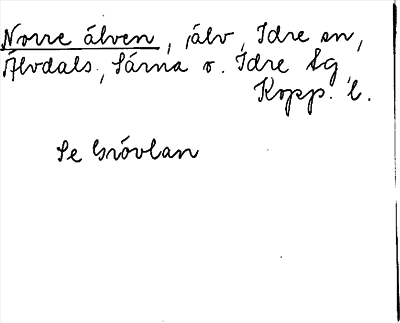 Norre älven, älv, Idre sn,
Älvdals, Särna o. Idre tg,
Kopp. l.
Se Grövlan